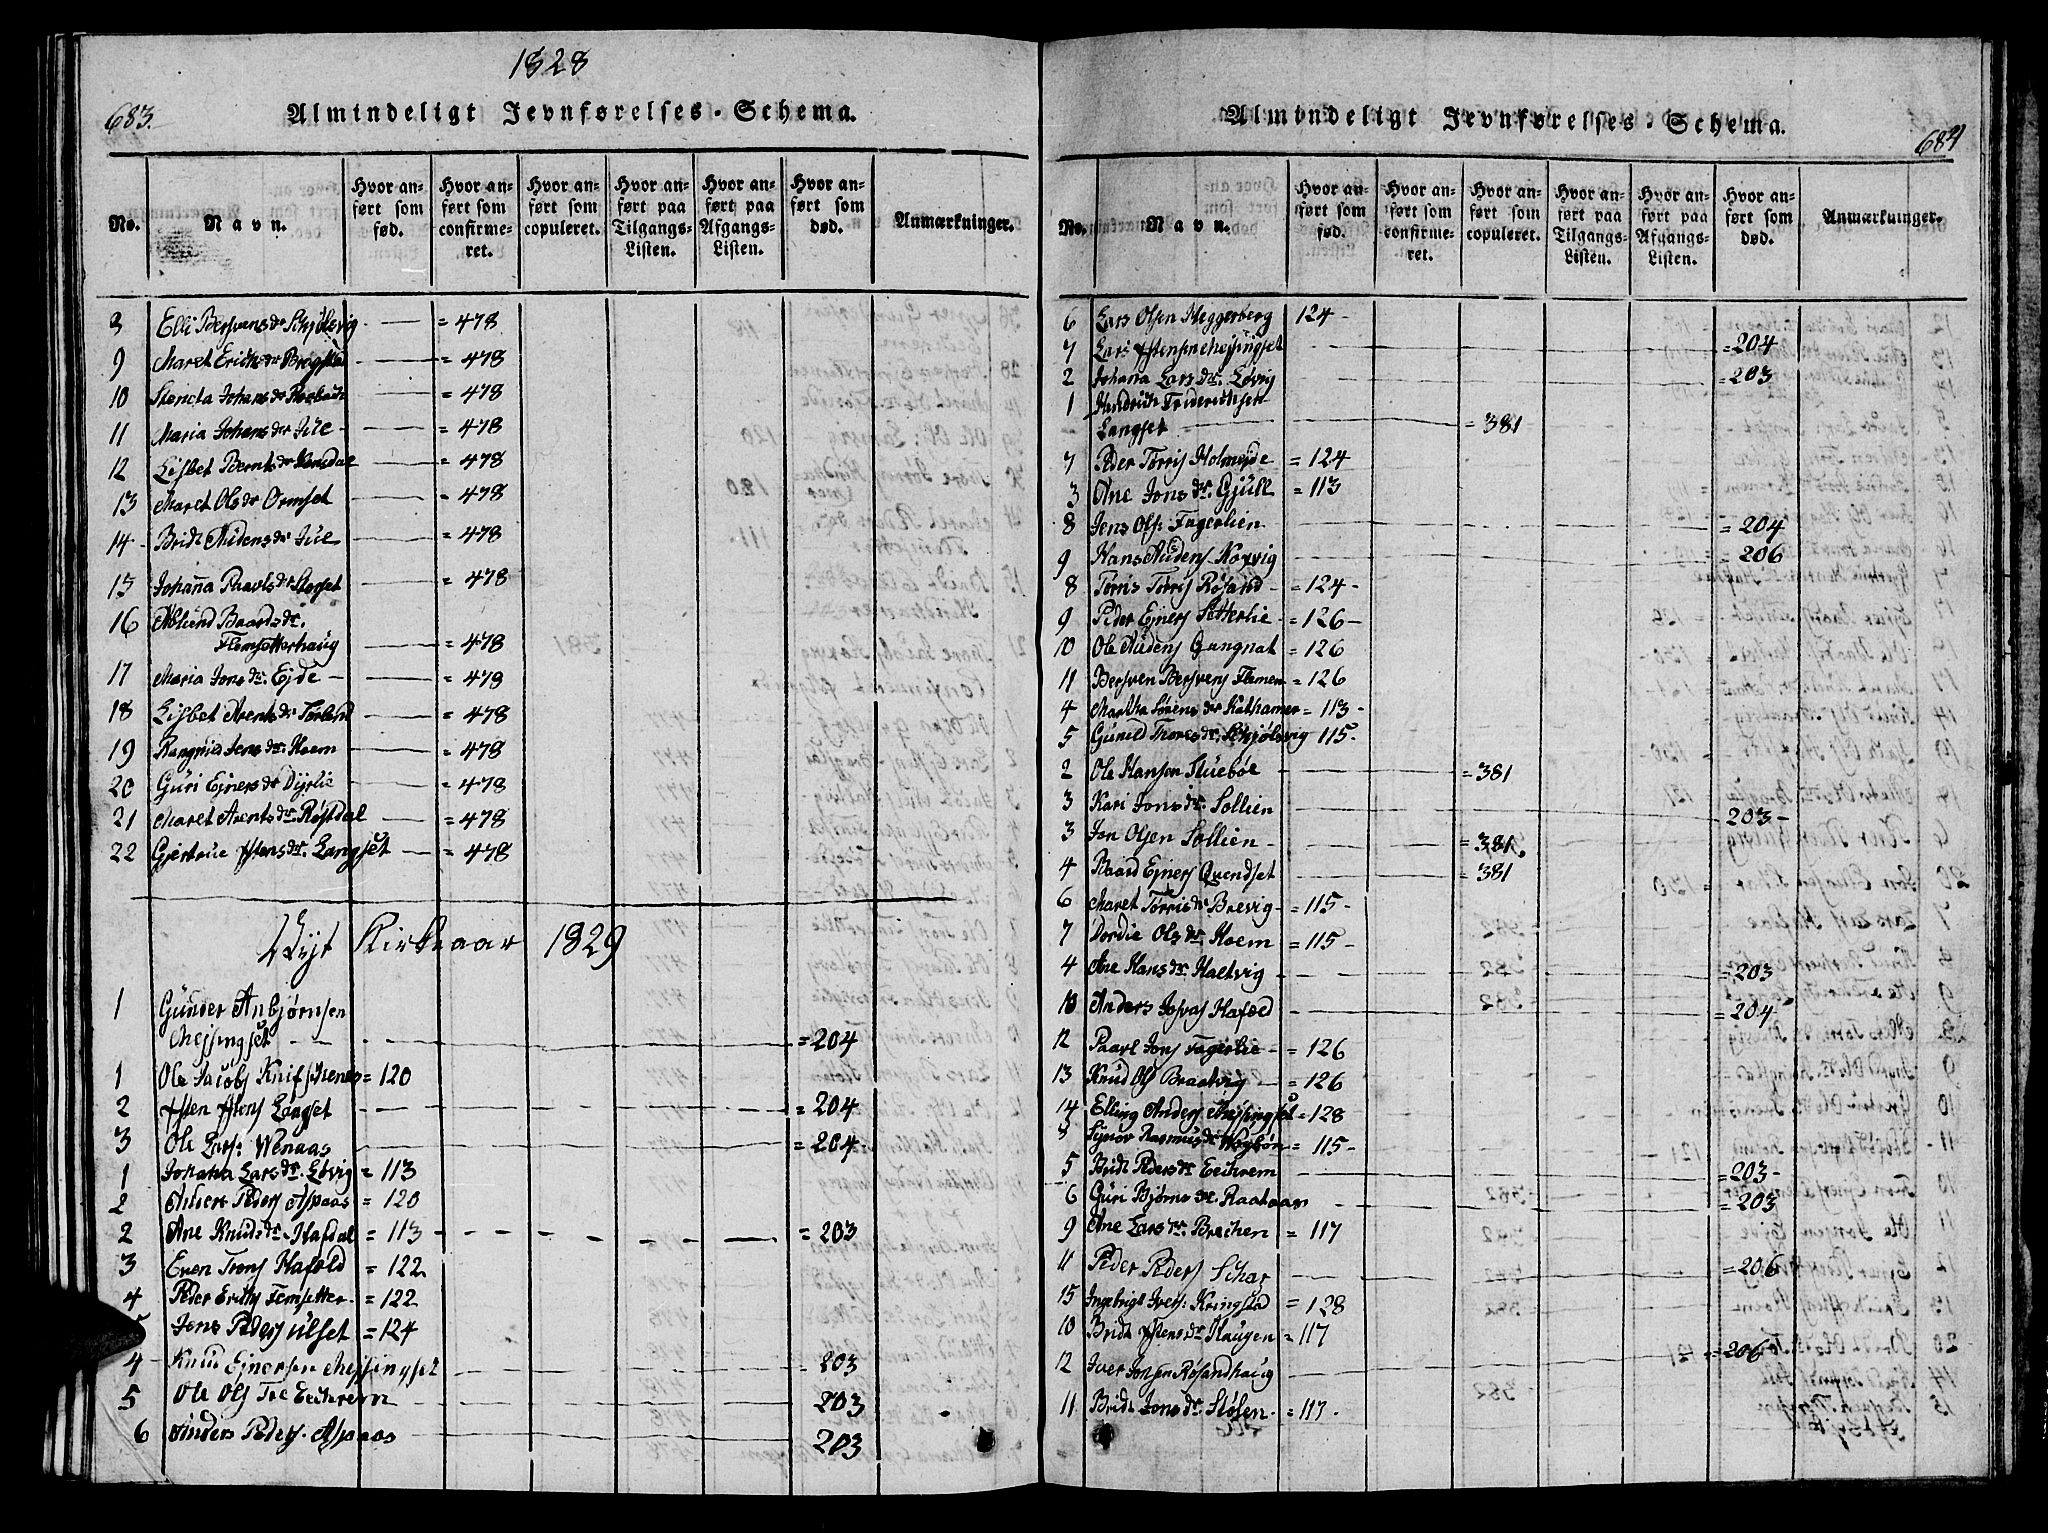 1828
683.
Almindeligt Jevnførelses-Schema.
No.
Navn.
Hvor anført som fød.
Hvor anført som confirmeret.
Hvor anført som copuleret.
Hvor anført paa Tilgangs-Listen.
Hvor anført paa Afgangs-Listen.
Hvor anført som død.
Anmærkninger.
8 Elli Bersvensdr Schjølsvig — = 478
9 Maret Erichsdr Bregstad — = 478
10 Stencta Johansdr — = 478
11 Maria Johansdr Iüe — = 478
12 Lisbet Berntsdr — = 478
13 Maret Olsdr Ormset — = 478
14 Bridt Audensdr Iüe — = 478
15 Johanna Paavlsdr — = 478
16 Baardsdr.
Flemsætterhaug — = 478
17 Maria Jonsdr. Ejde — = 478
18 Lisbet Arentsdr — = 478
19 Jensdr. Hoem — = 478
20 Guri Ejnersdr Dyrlie — = 478
21 Maret Arentsdr. Røstdal — = 478
22 Gjertrue Ystensdr. Langset — = 478
Nyt Kirkeaar 1829
1 Gunder Anbjørnsen
Mejsingset — = 204
1 Ole Jacobs = 120
2 Ysten Ystens Langset — = 204
3 Ole Lars: Wenaas — = 204
1 Johana Larsdr. Løvig = 113
2 Peders Aspaas = 120
2 Ane Knudsdr. Hafdal = 113 — = 203
3 Even Hafold = 122
4 Peder Erichs = 122
5 Jens Peders Ulset = 124
4 Knud Ejnersen Mejsingset — = 203
5 Ole Ols Eechrem — 203
6 Anders Peders. Aspaas — 203
Almindeligt Jevnførelses-Schema.
684
No.
Navn.
Hvor anført som fød.
Hvor anført som confirmeret.
Hvor anført som copuleret.
Hvor anført paa Tilgangs-Listen.
Hvor anført paa Afgangs-Listen.
Hvor anført som død.
Anmærkninger.
6 Lars Olsen Heggerberg 124 -
7 Lars Ystensen Mejsingset — = 204
2 Johana Larsdr. Løvig — = 203
1 Hendrich Friderichsen
Langset — = 381
7 Peder Torris Holmejde = 124
3 Ane Jonsdr. Gjüll = 113
8 Jens Ols: Fagerlien — = 204
9 Hans Audens Norvig — = 206
8 Torris Torris Røsand = 124 -
9 Peder Ejners Sætterlie = 126 -
10 Ole Audens Gungnat = 126
11 Bersven Bersvens Flemen = 126
4 Martha Sørensdr Kathamer = 113 -
5 Gunild Thoresdr. Schjølsvig 115.
2 Ole Hansen Stuebøe — = 381
3 Kari Jonsdr. Sollien — 203 -
3 Jon Olsen Sollien — = 381.
4 Baard Ejners Qvendset — = 381
6 Maret Torrisdr Brevig = 115 -
7 Dordie Olsdr. Hoem = 115 -
4 Ane Hansdr. Haltvig — = 203
10 Anders Hafold — = 204
12 Paavl Jons Fagerlie = 126
13 Knud Ols Braatvig = 126
14 Elling Anders Mejsingset = 128
8 Rasmusdr = 115 -
5 Bridt Pedersdr. Eechrem — = 203 -
6 Guri Bjørnsdr. Raataas — = 203
9 Ane Larsdr. Brechen = 117
11 Peder Peders Schar — = 206
15 Ingebrigt Ivers: Kringstad = 128
10 Bridt Ystensdr Haugen = 117
12 Iver Jonsen Røsandhaug — = 206
11 Bridt Jonsdr. Stølen = 117.